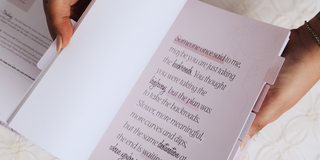 Someone once said to me,
maybe you are just taking
the backroads. You thought
you were taking the
highway, but the plan was
to take the backroads.
Slower, more meaningful,
more curves and dips,
but the same destination at
the end is waiting